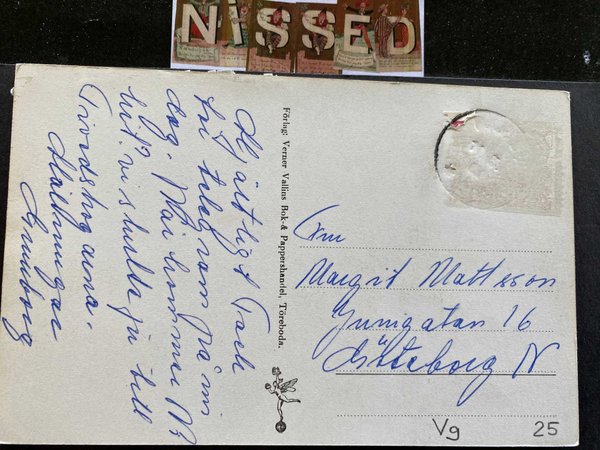 NiSSED
Hjärtligt Tack
för telegram på min
dag. När kommer Ni
hit? vi skulle ju till
Tivedskogarna.
Hälsningar
Gunborg
Förlag: Verner Vallins Bok- & Pappershandel, Töreboda.
Fru
Margit Mattsson
Junigatan 16
Göteborg N
Vg 25